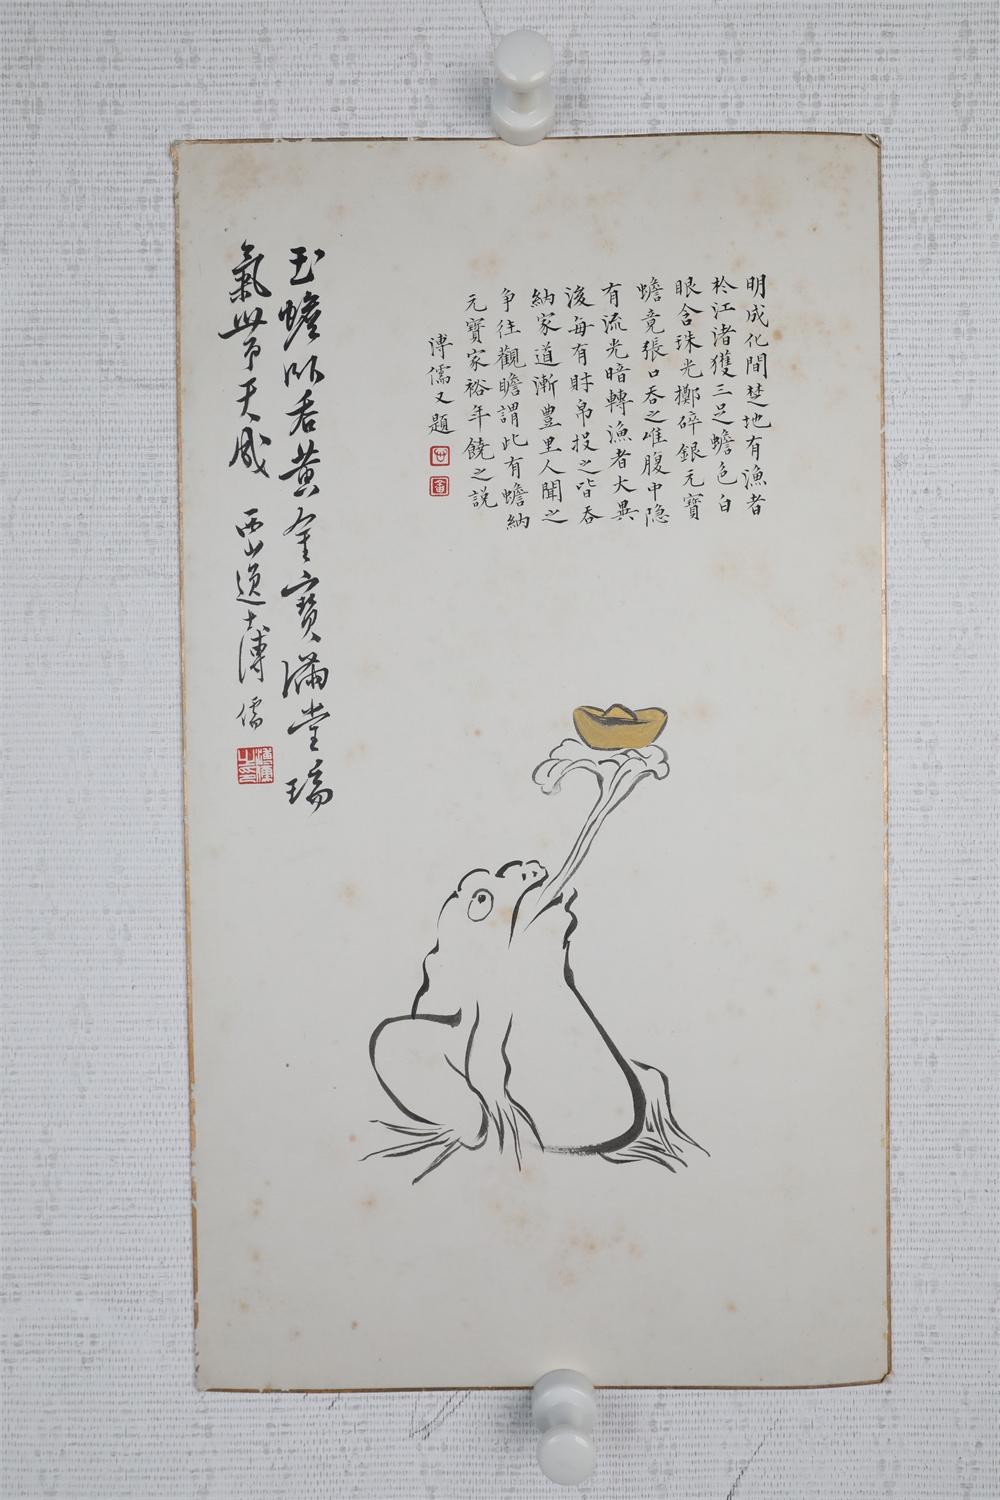 明成化間楚地有漁者
於江渚獲三足蟾色白
眼含珠光擲碎銀元寶
蟾竟張口吞之唯腹中隐
有流光暗轉漁者大異
後每有財帛投之皆吞
納家道漸豐里人聞之
争往觀瞻謂此有蟾納
元寶家裕年饒之説
溥儒又題
玉蟾吐吞黄金寳滿堂瑞
氣帶天成
西山逸士溥儒
溥儒之印